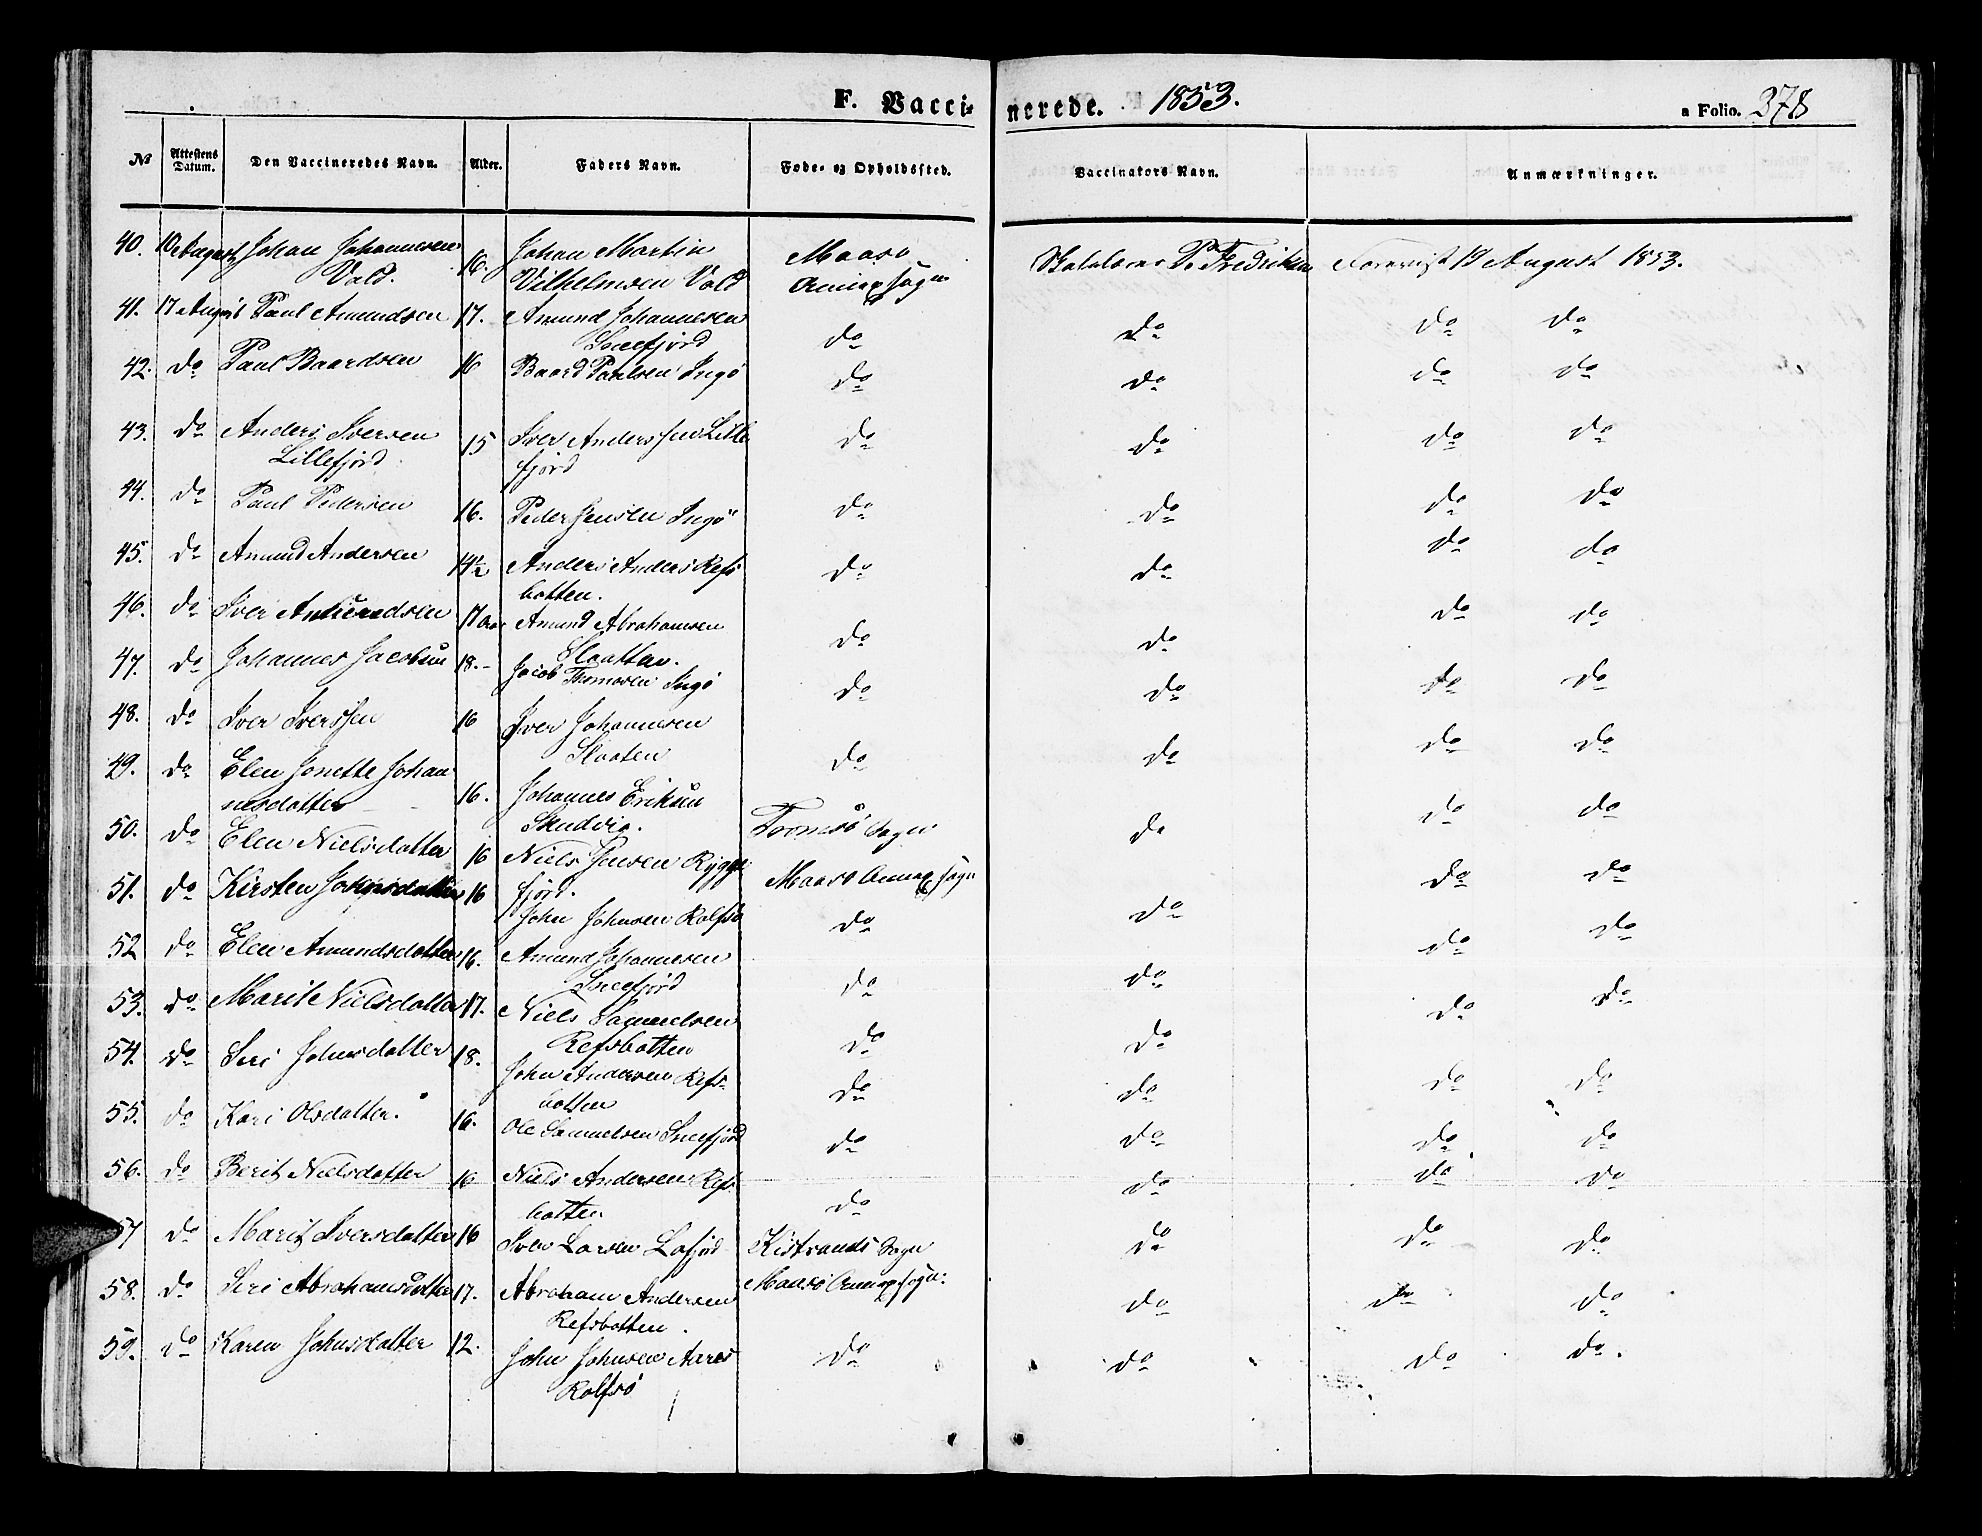 F. Vaccinerede. 1853.
a Folio. 378
No Attestens Datum. Den Vaccineredes Navn. Alder. Faders Navn. Føde- og Opholdssted. Vaccinators Navn. Anmærkninger.
40. 10 August Johan Johannesen 16. Johan Martin Maasø Fredriksen Foreviist 19 August 1853.
Vold. Vilhelmsen Vold Annexsogn
41. 17 August Paul Amundsen 17. Amund Johannesen do do do do
Sneefjord
42. do Paul Baardsen 16 Baard Paulsen Ingø do do do do
43. do Anders Iversen 15 Iver Anderssen Lille do do do do
Lillefjord fjord
44. do Paul Pedersen 16. Peder Jensen Ingø do do do do
45. do Amund Andersen 14½ Anders Anders Refs do do do do
botten.
46. do Iver Amundsen 17 Amund Abrahamsen do do do do
Slaatten.
47. do Johannes Jacobsen 18. Jacob Thomasen Ingø do do do do
48. do Iver Iverssen 16 Iver Johannesen do do do do
Slaaten
49. do Elen Jonette Johan 16. Johannes Eriksen do do do
nesdatter
50. do Elen Nielsdatter 16 Niels Jensen Rygge Sogn do do do
fjord.
51. do Kirsten Johnsdatter 16 John Johnsen Rolfsø Maasø Annexsogn do do do
52 do Elen Amundsdatter 16. Amund Johannesen do do do do
Sneefjord
53. do Marit Nielsdatter 17. Niels Samuelsen do do do do
Refsbotten
54. do Siri Johnsdatter 18. John Andersen Refs- do do do do
botten
55. do Kari Olsdatter. 16. Ole Samuelsen Sneefjord do do do do
56. do Berit Nielsdatter 16 Niels Andersen Refs do do do do
botten
57 do Marit Iversdatter 16 Iver Larsen Lafjord Kistrands Sogn do do do
58. do Siri Abrahamsdatter 17. Abraham Andersen Maasø Annexsogn. do do do
Refsbotten.
59. do Karen Johnsdatter 12. John Johnsen do do do do
Rolfsø